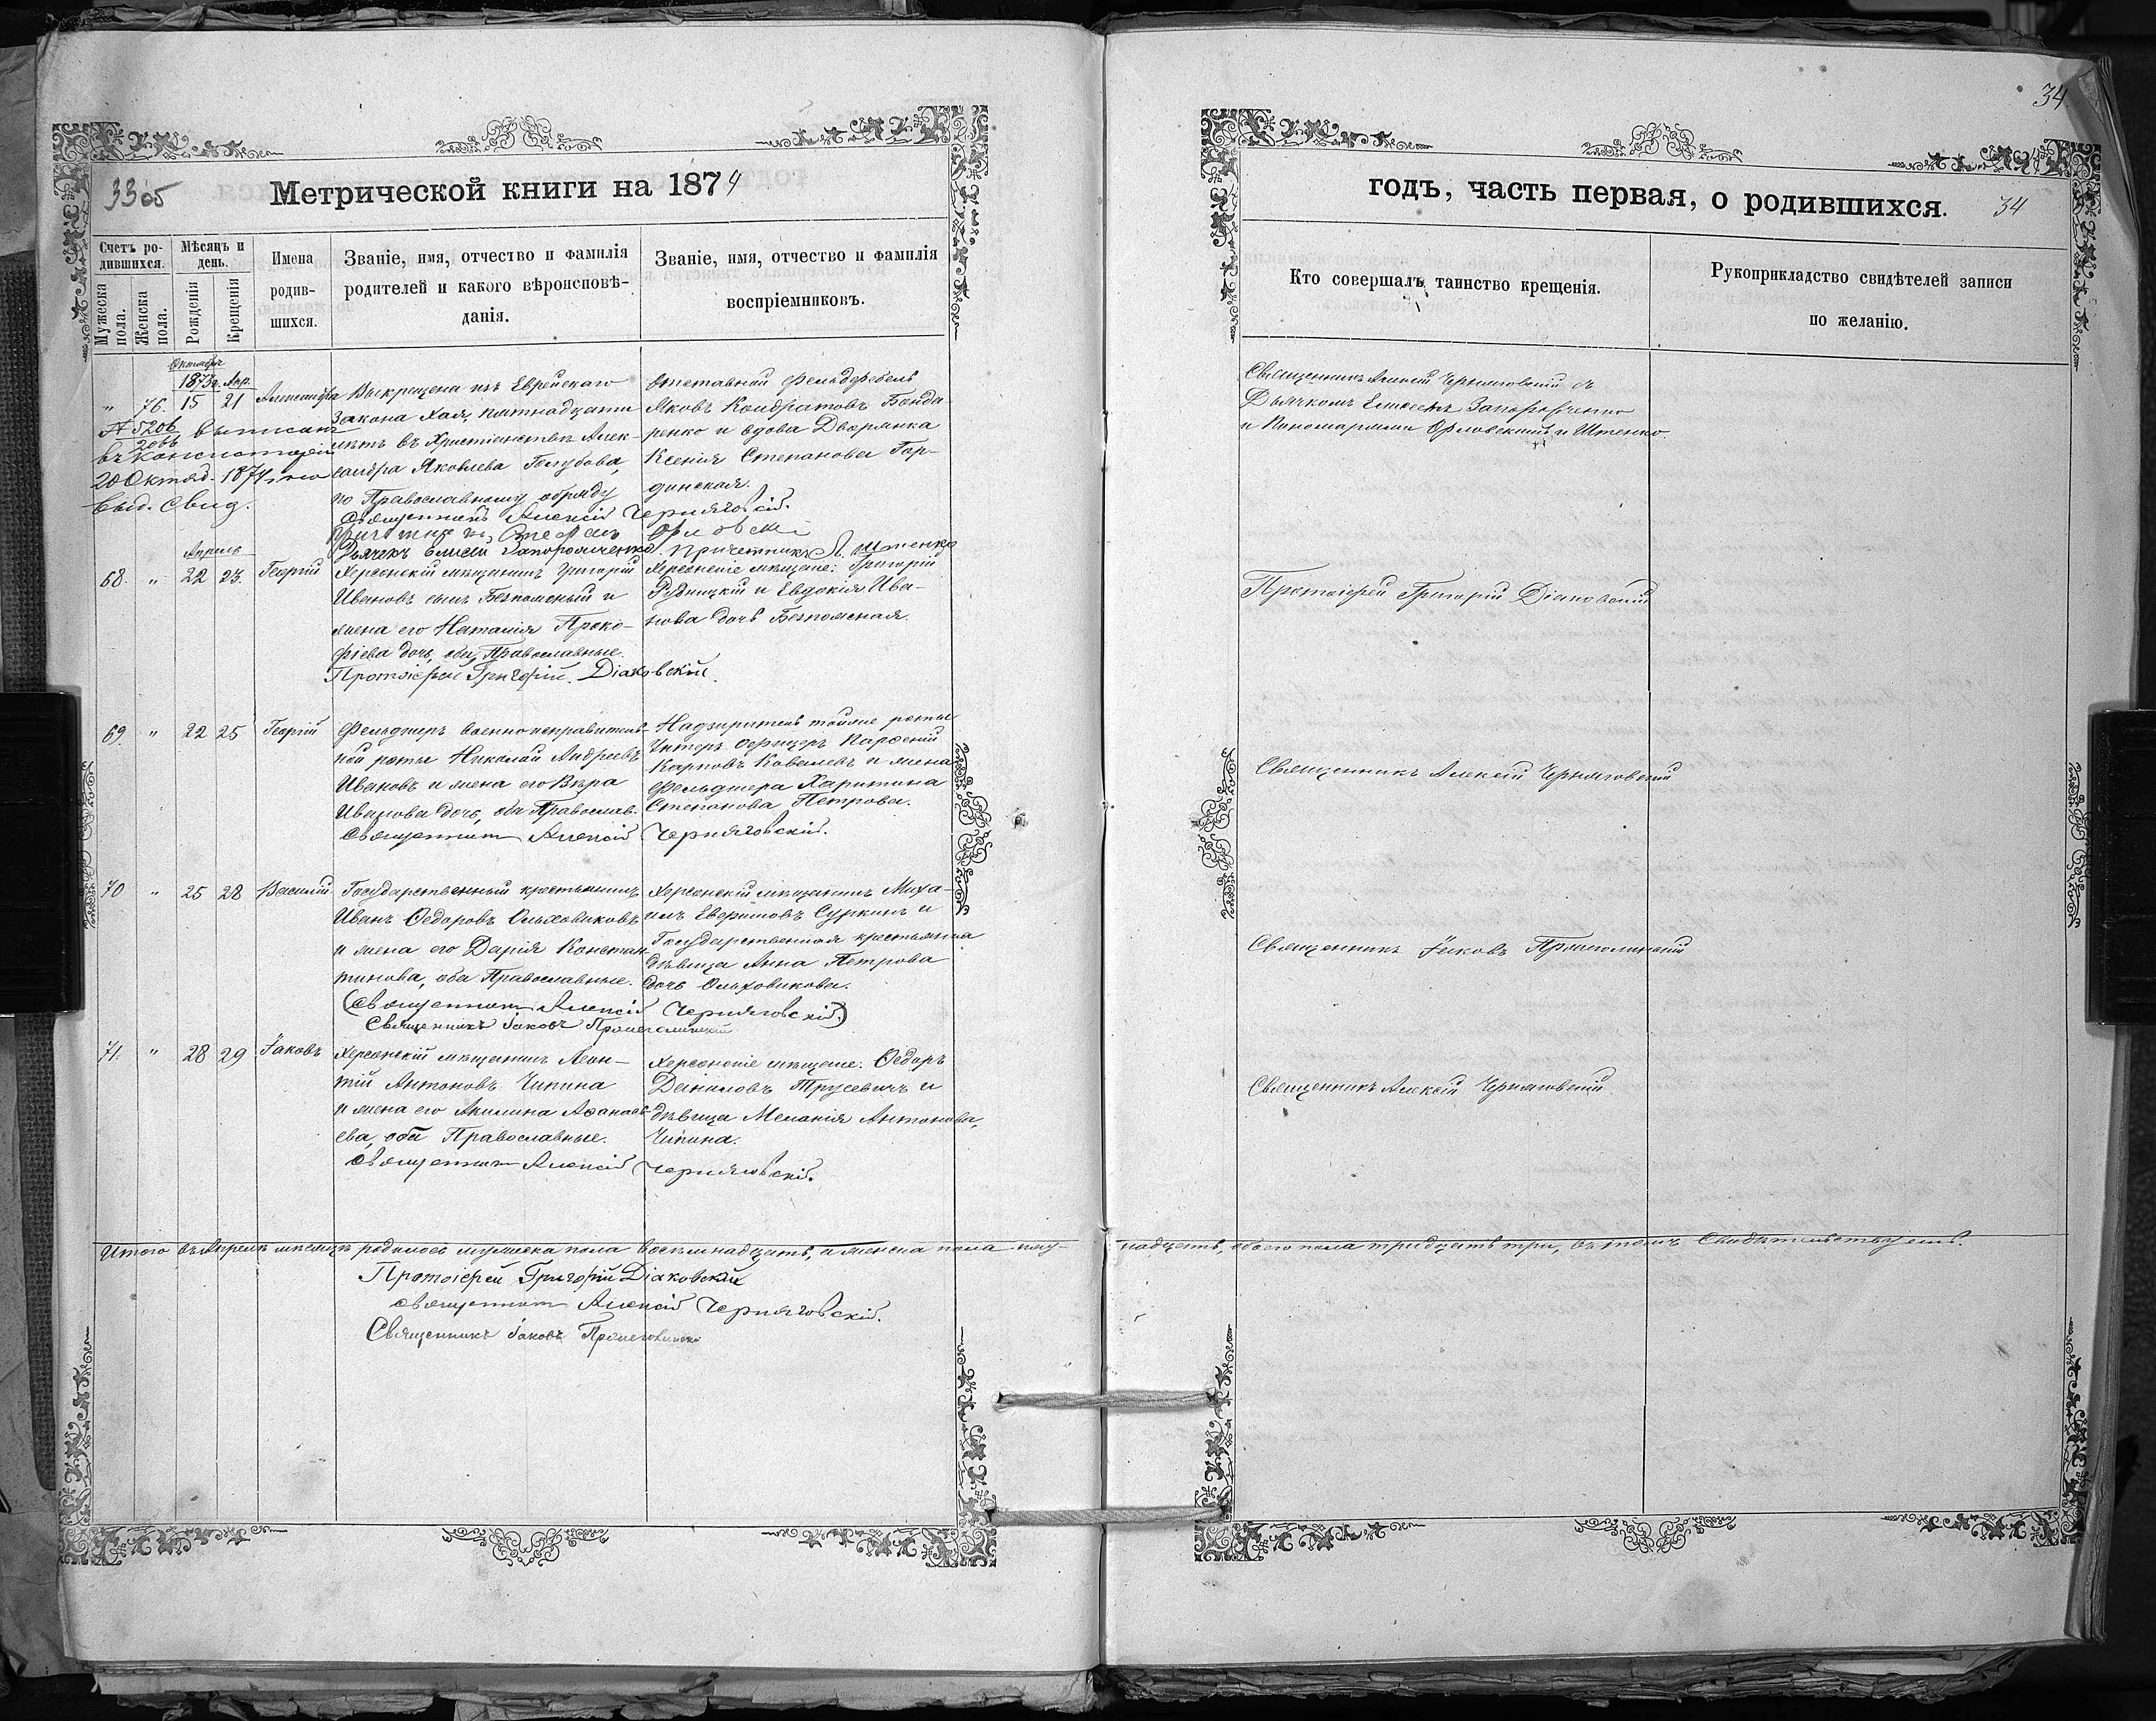 34
33об
Метрической книги на 1874
годъ, часть первая, о родившихся.
34
Счетъ ро-
дившихся.
Мужеска
пола.
Женска
пола.
Мѣсяцъ и
день.
Рожденія
Крещенія
Имена
родив-
шихся.
Званіе, имя, отчество и фамилія
родителей и какого вѣроисповѣ-
данія.
Званіе, имя, отчество и фамилія
воспріемниковъ.
Кто совершалъ таинство крещенія.
Рукоприкладство свидѣтелей записи
по желанію.
Октября
1873г. Апр.
" 76. 15 21 Александра
выписанъ
въ консисторіи
20 Октяб. 1874
выд. Свид.
Выкрещена изъ Еврейскаго
Закона Хая, пятнадцати
лѣтъ въ Христіанствѣ Алек-
сандра Яковлева Голубова,
по Православному обряду
Священникъ Алексій Черняговскій.
Дьячекъ Елисей Запорожченко. Причетникъ Штенко
отставной Фельдфебель
Яковъ Кондратовъ Бонда-
ренко и вдова Дворянка
Ксенія Степанова Гор-
динская.
Священникъ Алексій Черняговскій съ
Дьячкомъ Елисеемъ Запорожченко
и Пономарями Орловскимъ и Штенко.
Апрель
68. " 22 23. Георгій
Херсонскій мѣщанинъ Григорій
Ивановъ сынъ Безпомсный и
жена его Наталія Проко-
фіева дочь, оба Православные.
Протоіерей Григорій Діаковскій.
Херсонскіе мѣщане: Григорій
Рудницкій и Евдокія Ива-
нова дочь Безпомсная.
Протоіерей Григорій Діаковскій
69. " 22 25 Георгій
Фельдшеръ военноисправитель-
ной роты Николай Андреевъ
Ивановъ и жена его Вѣра
Иванова дочь, оба Православ.
Священникъ Алексій Черняговскій.
Надзиратель тойже роты
Унтеръ офицеръ Парфеній
Карповъ Ковалевъ и жена
фельдшера Харитина
Степанова Петрова.
Священникъ Алексій Черняговскій
70 " 25 28 Василій
Государственный крестьянинъ
Иванъ Ѳедоровъ Ольховиковъ
и жена его Дарія Констан-
тинова, оба Православные.
(Священникъ Алексій Черняговскій)
Священникъ Іаковъ
Херсонскій мѣщанинъ Миха-
илъ Евфимовъ Суркинъ и
Государственная крестьянка
дѣвица Анна Петрова
дочь Ольховикова.
Священникъ Іаковъ
71. " 28 29 Іаковъ
Херсонскій мѣщанинъ Леон-
тій Антоновъ Чипина
и жена его Акилина Аѳанась-
ева, оба Православные.
Священникъ Алексій Черняговскій.
Херсонскіе мѣщане: Ѳедоръ
Даниловъ Трусевичъ и
дѣвица Меланія Антонова,
Чипина.
Священникъ Алексій Черняговскій.
Итого въ Апрелѣ мѣсяцѣ родилось мужеска пола восемнадцать, а женска пола пят-
надцать, обоего пола тридцать три, въ томъ Свидѣтельствуемъ.
Протоіерей Григорій Діаковскій
Священникъ Алексій Черняговскій.
Священникъ Іаковъ